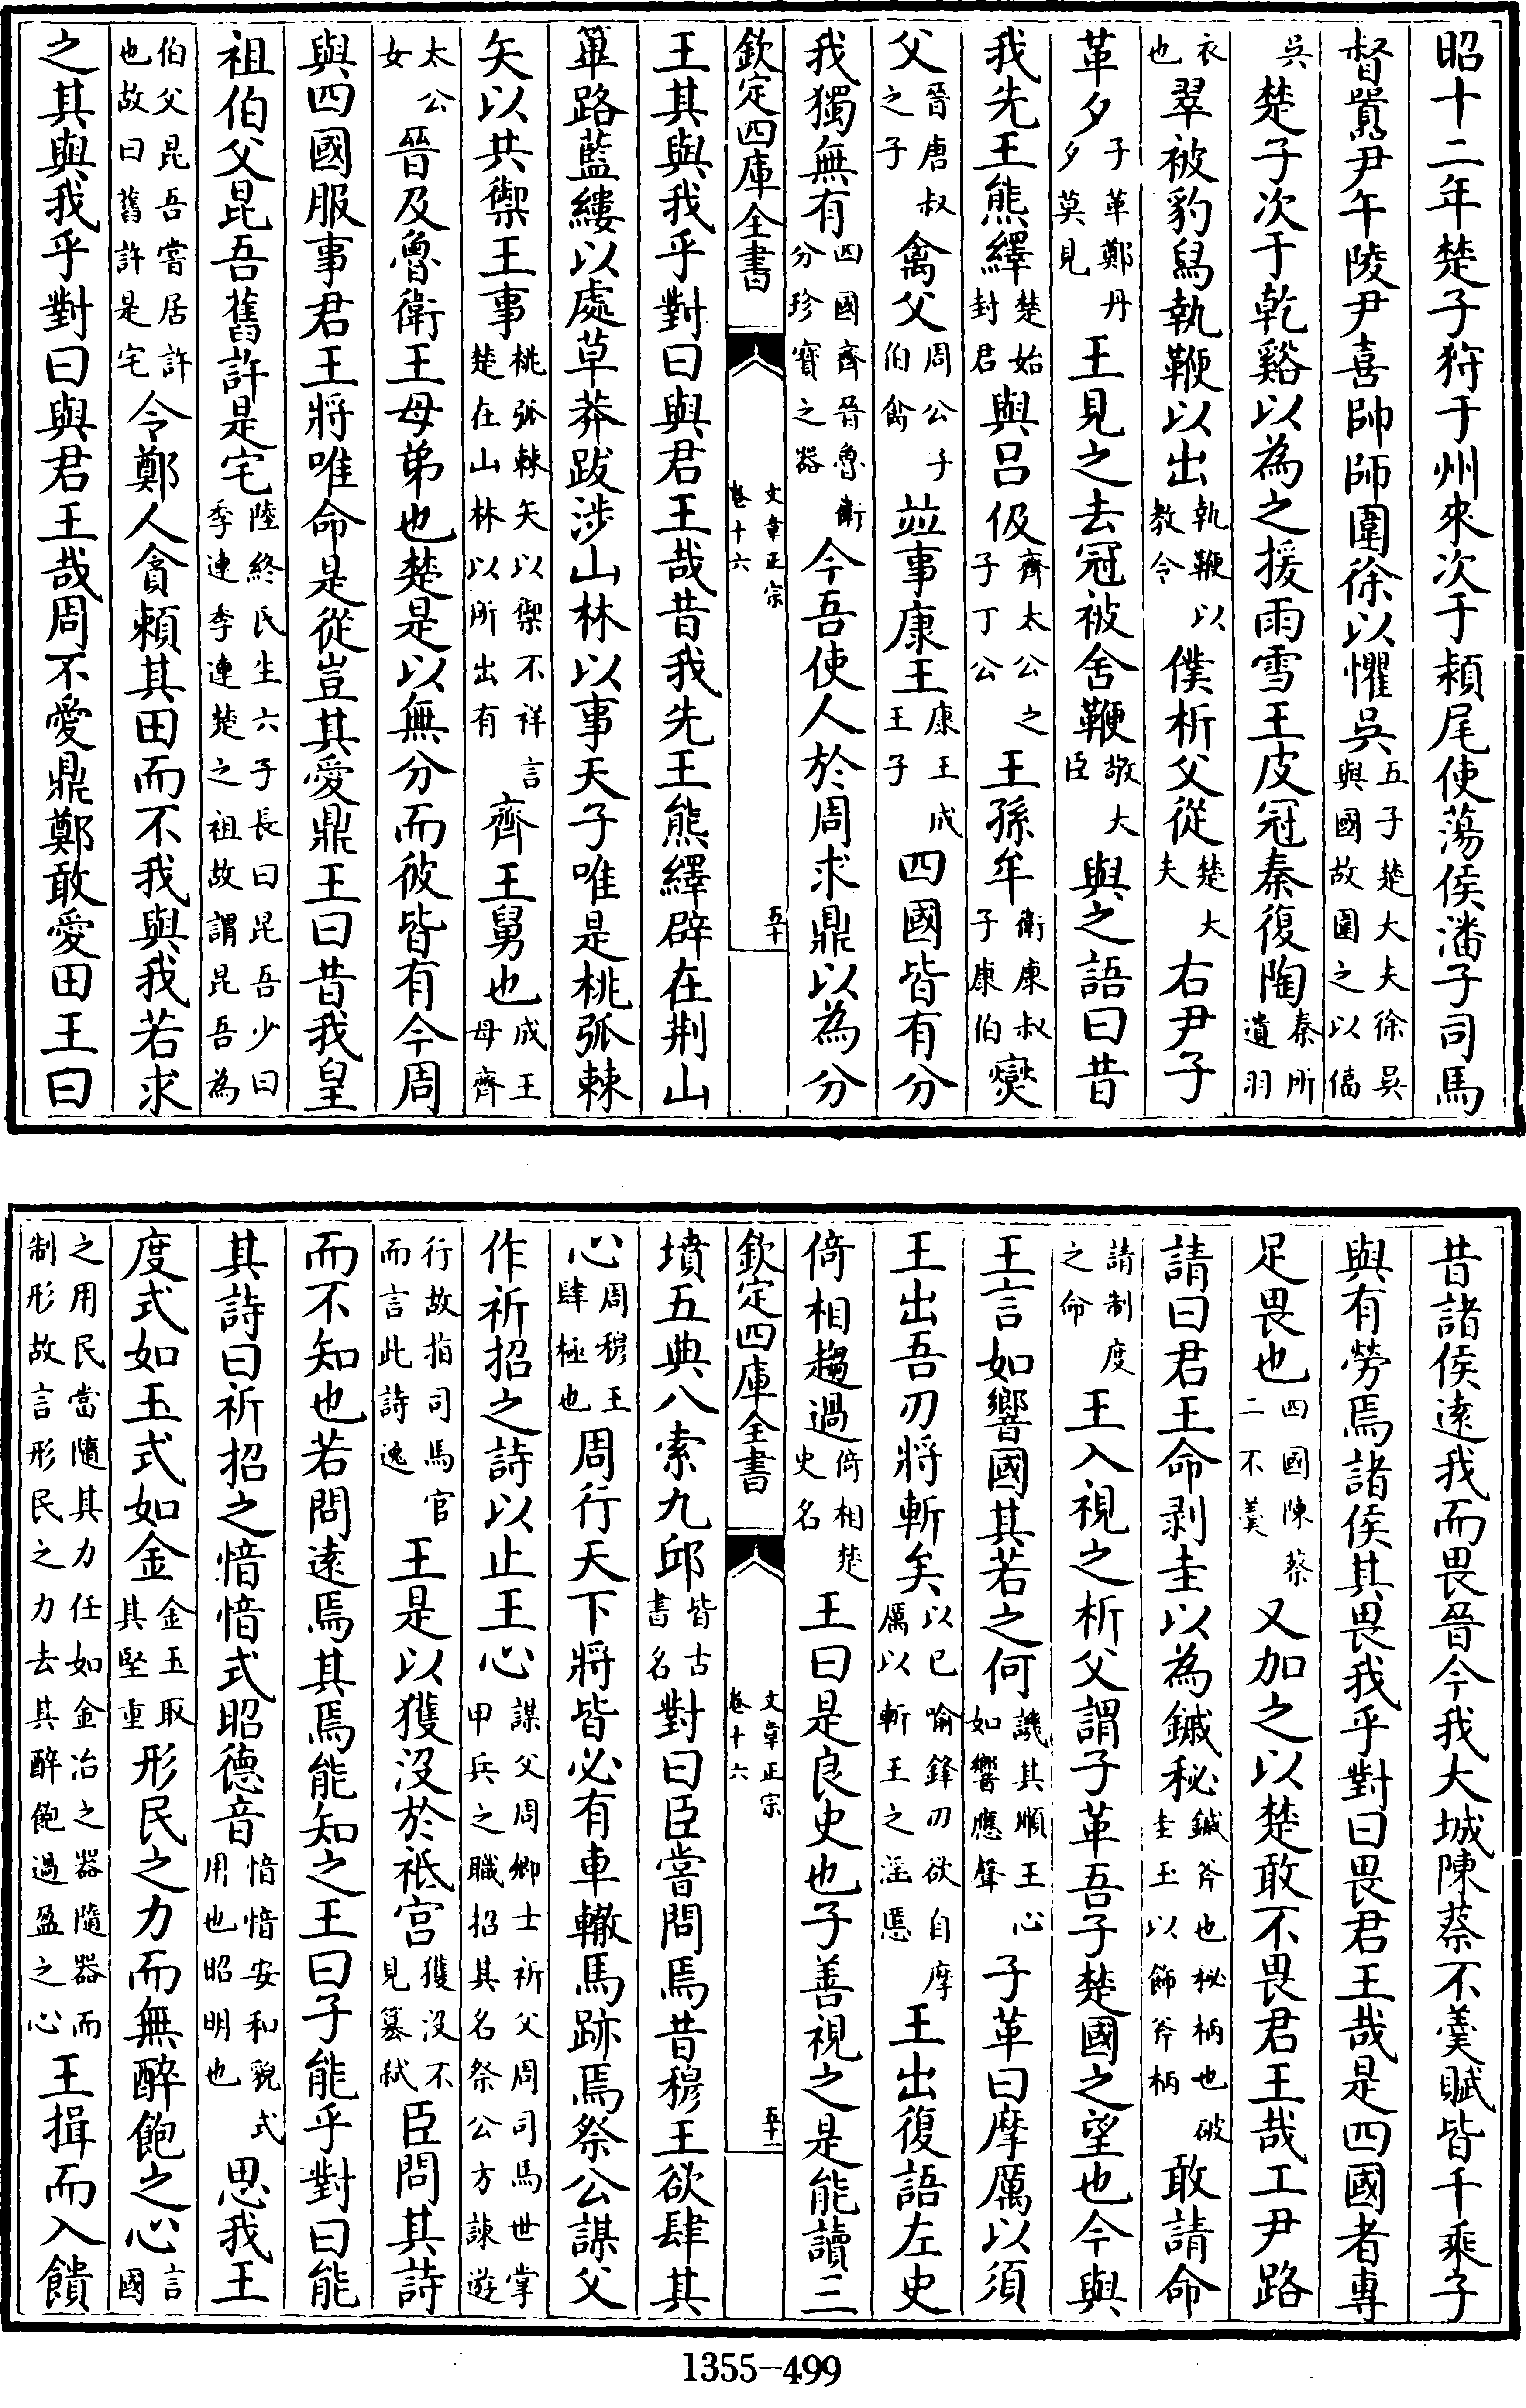 昭十二年楚子狩于州來次于頴尾使蕩侯潘子司馬
督嚚尹午陵尹喜帥師圍徐以懼吳五子楚大夫徐吳與國故圍之以偪
吳楚子次于乾谿以為之援雨雪王皮冠秦復陶秦所遺羽
衣也翠被豹舄執鞭以出執鞭以教令僕析父從楚大夫右尹子
革夕子革鄭丹夕莫見王見之去冠被舍鞭敬大臣與之語曰昔
我先王熊繹楚始封君與吕伋齊太公之子丁公王孫牟衛康叔子康伯爕
父晉唐叔之子禽父周公子伯禽竝事康王康王成王子四國皆有分
我獨無有四國齊晉魯衛分珍寳之器今吾使人於周求鼎以為分
欽定四庫全書 文章正宗 卷十六 五十
王其與我乎對曰與君王哉昔我先王熊繹辟在荆山
篳路藍縷以處草莽跋涉山林以事天子唯是桃弧棘
矢以共禦王事桃弧棘矢以禦不祥言楚在山林以所出有齊王舅也成王母齊
太公女晉及魯衛王母弟也楚是以無分而彼皆有今周
與四國服事君王將唯命是從豈其愛鼎王曰昔我皇
祖伯父昆吾舊許是宅陸終氏生六子長曰昆吾少曰季連季連楚之祖故謂昆吾為
伯父昆吾嘗居許也故曰舊許是宅今鄭人貪頼其田而不我與我若求
之其與我乎對曰與君王哉周不愛鼎鄭敢愛田王曰
昔諸侯逺我而畏晉今我大城陳蔡不羮賦皆千乘子
與有勞焉諸侯其畏我乎對曰畏君王哉是四國者專
足畏也四國陳蔡二不羮又加之以楚敢不畏君王哉工尹路
請曰君王命剥圭以為鏚柲鏚斧也柲柄也破圭玉以飾斧柄敢請命
請制度之命王入視之析父謂子革吾子楚國之望也今與
王言如響國其若之何譏其順王心如響應聲子革曰摩厲以須
王出吾刃將斬矣以己喻鋒刃欲自摩厲以斬王之淫慝王出復語左史
倚相趨過倚相楚史名王曰是良史也子善視之是能讀三
欽定四庫全書 文章正宗 卷十六 五十一
墳五典八索九邱皆古書名對曰臣嘗問焉昔穆王欲肆其
心周穆王肆極也周行天下將皆必有車轍馬跡焉祭公謀父
作祈招之詩以止王心謀父周卿士祈父周司馬世掌甲兵之職招其名祭公方諫遊
行故指司馬官而言此詩逸王是以獲沒於祗宫獲沒不見簒弑臣問其詩
而不知也若問逺焉其焉能知之王曰子能乎對曰能
其詩曰祈招之愔愔式昭德音愔愔安和貌式用也昭明也思我王
度式如玉式如金金玉取其堅重形民之力而無醉飽之心言國
之用民當隨其力任如金冶之器隨器而制形故言形民之力去其醉飽過盈之心王揖而入饋
1355-499